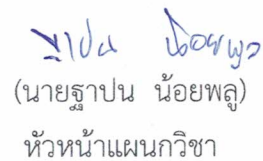 ฐาปน น้อยพลู
(นายฐาปน น้อยพลู)
หัวหน้าแผนกวิชา